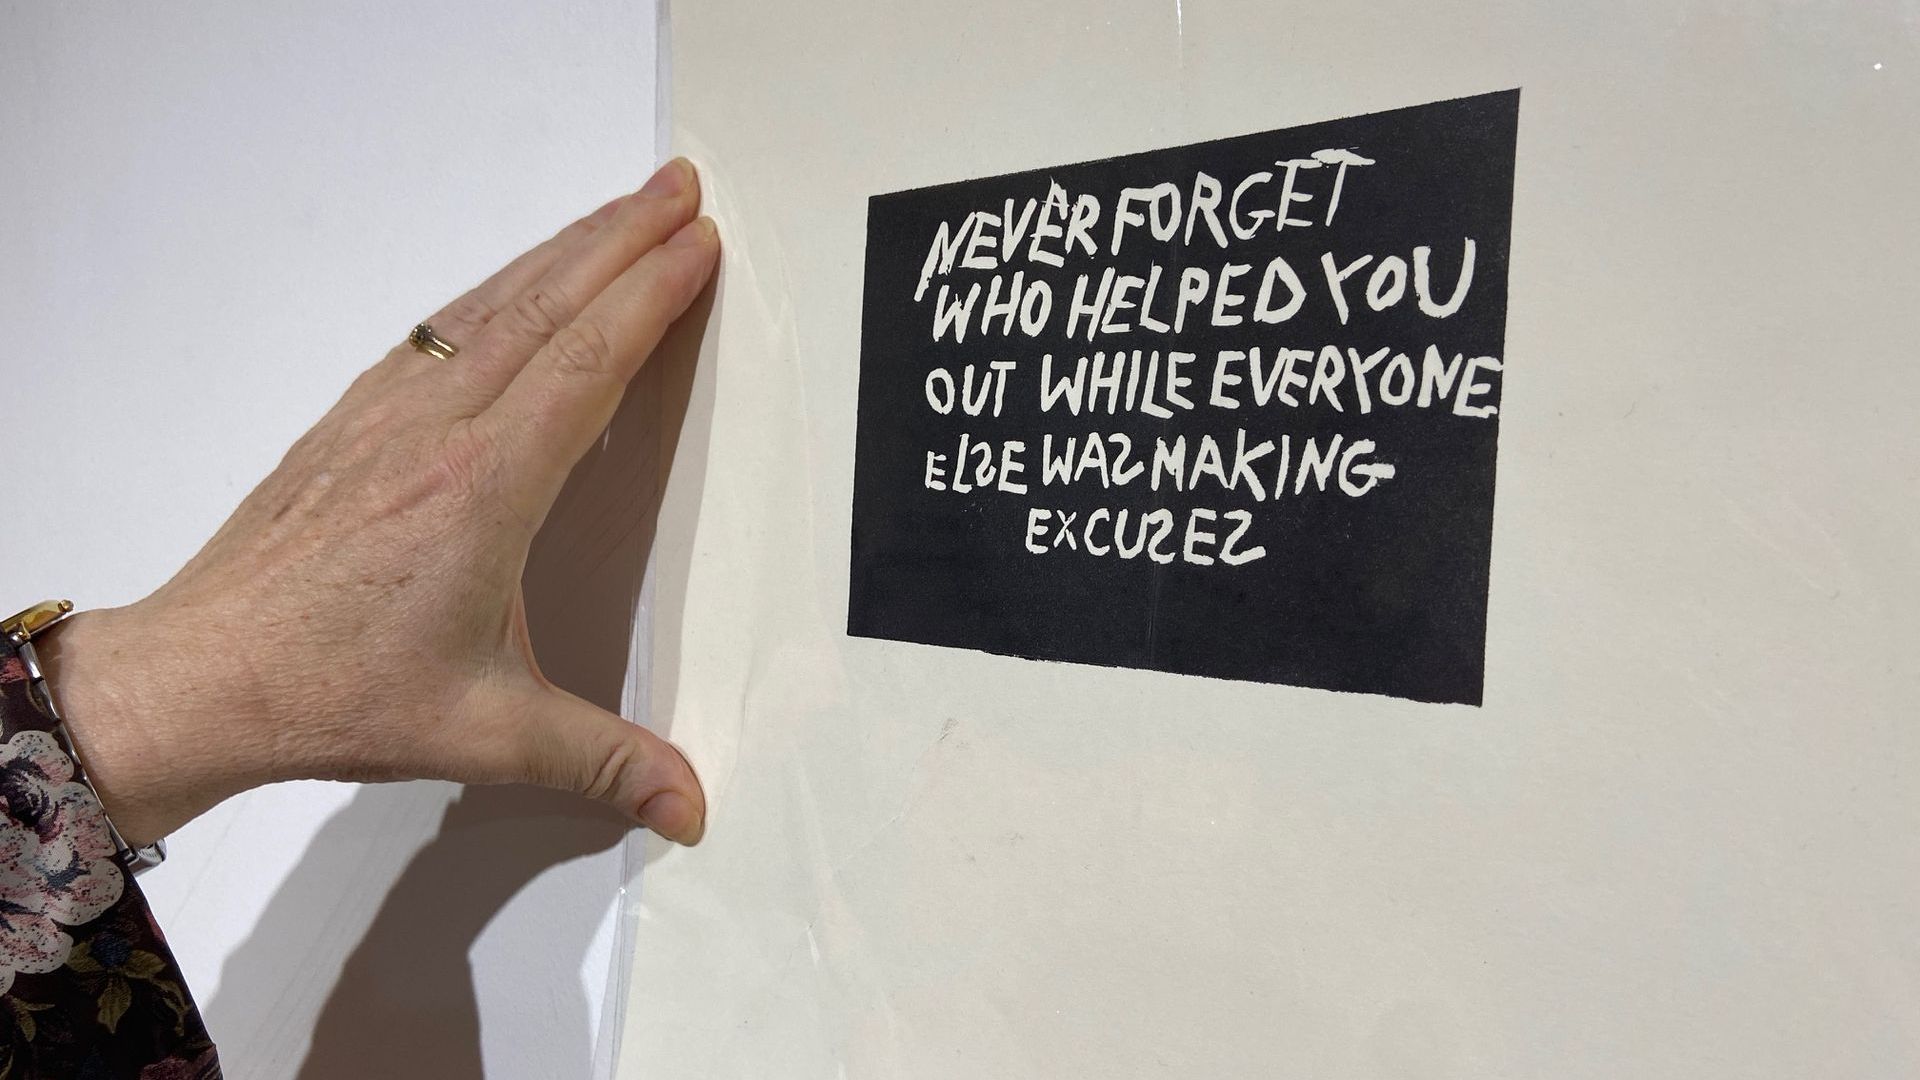 NEVER FORGET
WHO HELPED YOU
OUT WHILE EVERYONE
ELSE WAS MAKING
EXCUSES